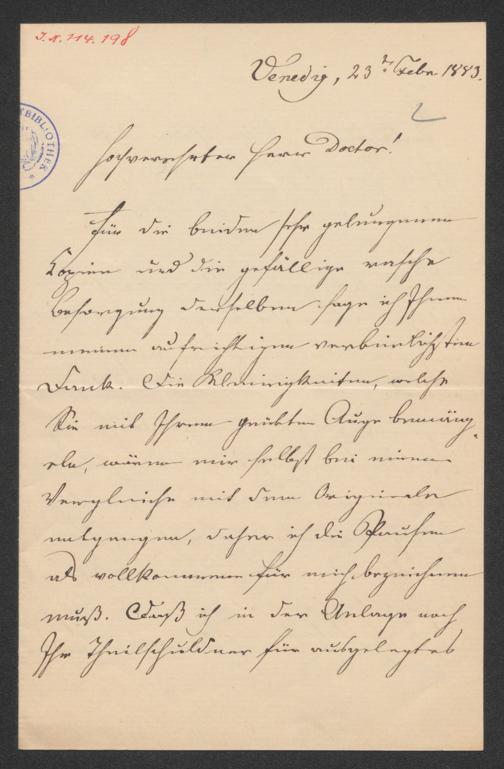 J.N. 114.198
Venedig, 23ten Febr 1883.
2
BIBLIOTHEK
Hochverehrter Herr Doctor!
Für die beiden sehr gelungenen
Copien und die gefällige rasche
Besorgung derselben sage ich Ihnen
meinen aufrichtigen verbindlichsten
Dank. Die Kleinigkeiten, welche
Sie mit Ihrem geübten Auge bemäng-
eln, wären mir selbst bei einem
Vergleiche mit dem Originale
entgangen, daher ich die Pausen
als vollkommen für mich bezeichnen
muß. Daß ich in der Anlage noch
Ihr Theilschuldner für ausgelegtes